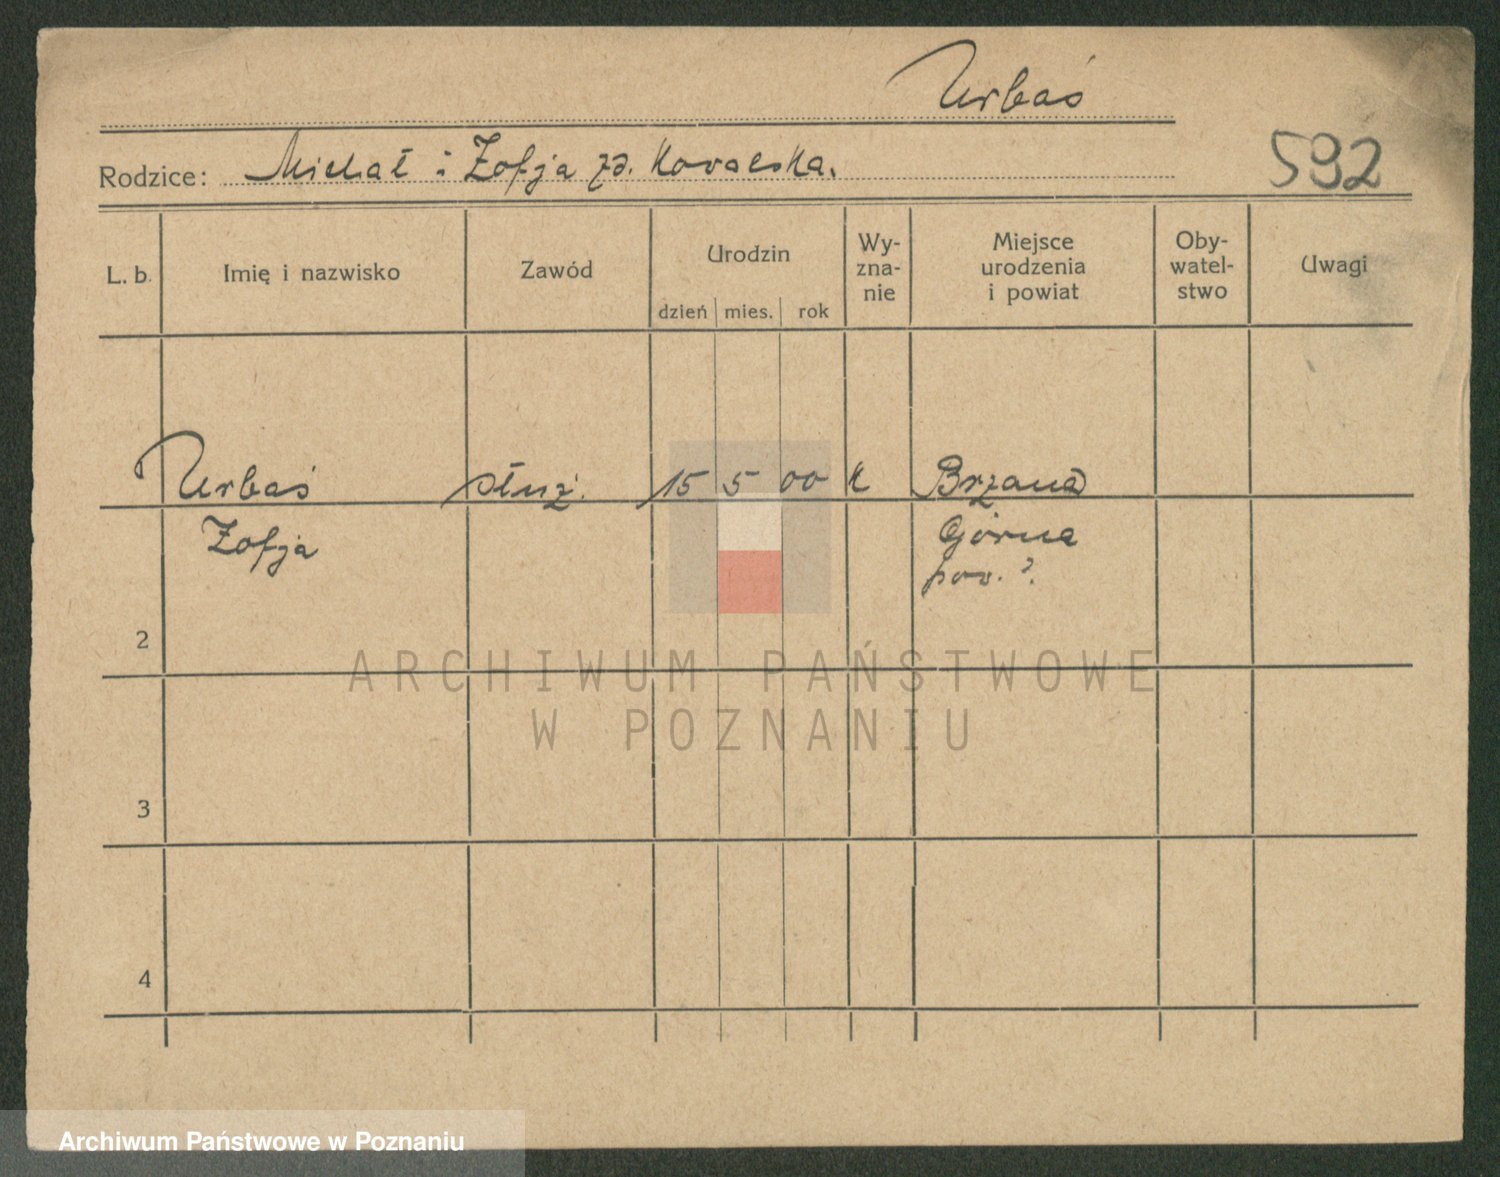 Urbaś
Rodzice: Michał i Zofja zd. Kowalska.
592
L. b. Imię i nazwisko Zawód Urodzin Wy-zna-nie Miejsce urodzenia i powiat Oby-watel-stwo Uwagi
dzień mies. rok
Urbaś służ. 15 5 00 k Brzana
Zofja Górna
pow. ?.
2
ARCHIWUM PAŃSTWOWE
W POZNANIU
3
4
Archiwum Państwowe w Poznaniu